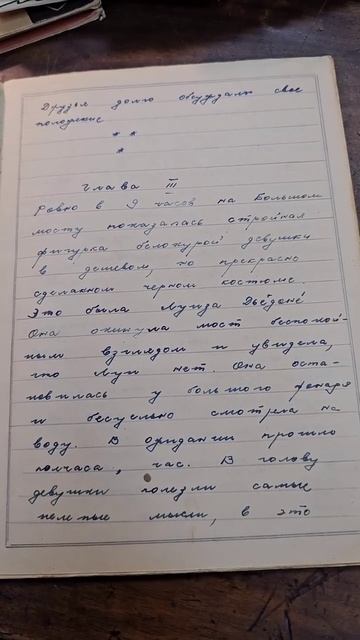 Друзья долго обсуждали свое
положение
* *
*
Глава III
Ровно в 9 часов на Большом
мосту показалась стройная
фигурка белокурой девушки
в дешевом, но прекрасно
сделанном черном костюме.
Это была Луиза Дьёдоне
Она окинула мост беспокой-
ным взглядом и увидела,
что Луи нет. Она оста-
новилась у большого фонаря
и бесцельно смотрела на
воду. В ожидании прошло
полчаса, час. В голову
девушки полезли самые
нелепые мысли, в это